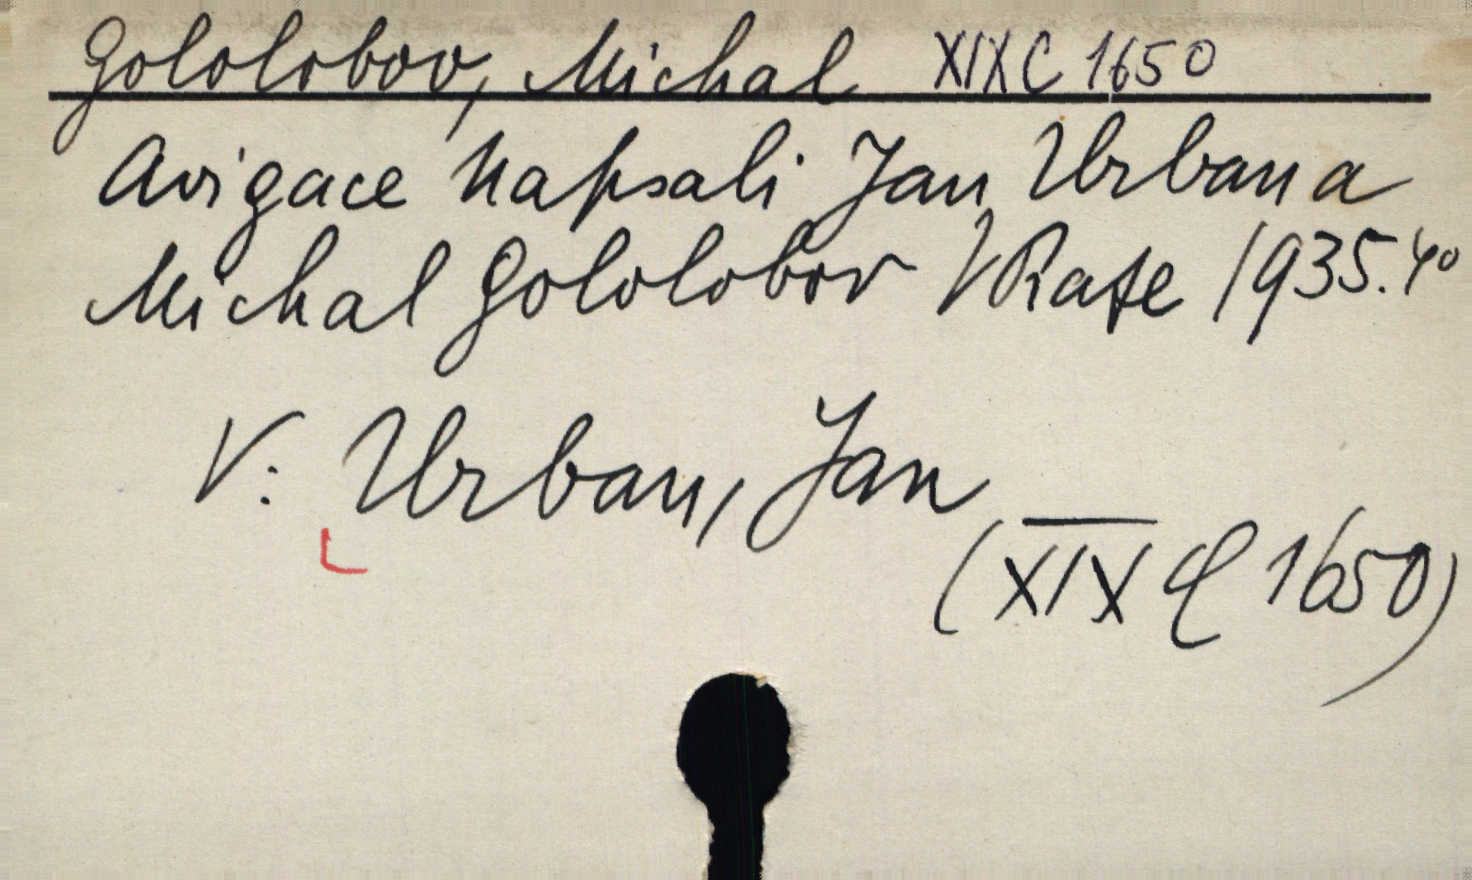 Gololobov, Michal XIX C 1650
Avigace Napsali Jan Urban a
Michal Gololobov V Praze 1935. 4°
V: Urban, Jan
(XIX C 1650)